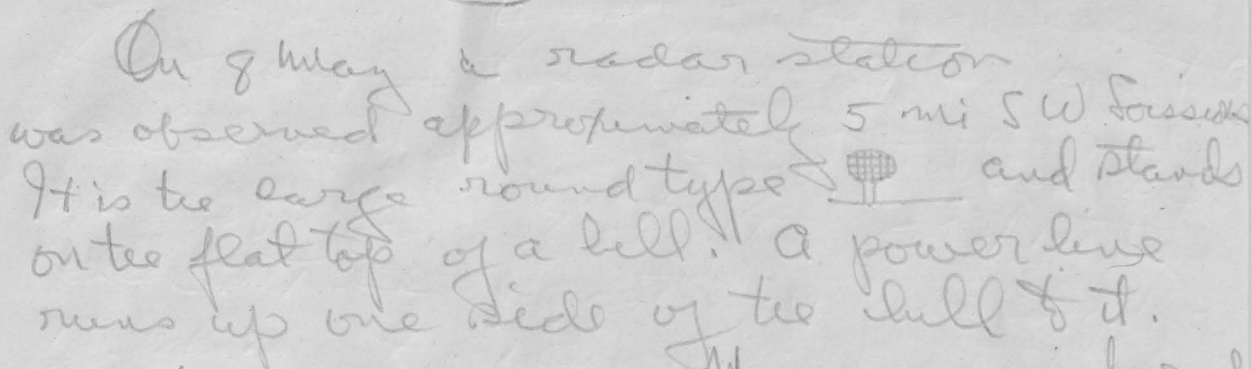 On 8 May a radar station
was observed approximately 5 mi SW Soissons
It is the large round type and stands
on the flat top of a hill. A power line
runs up one side of the hill to it.